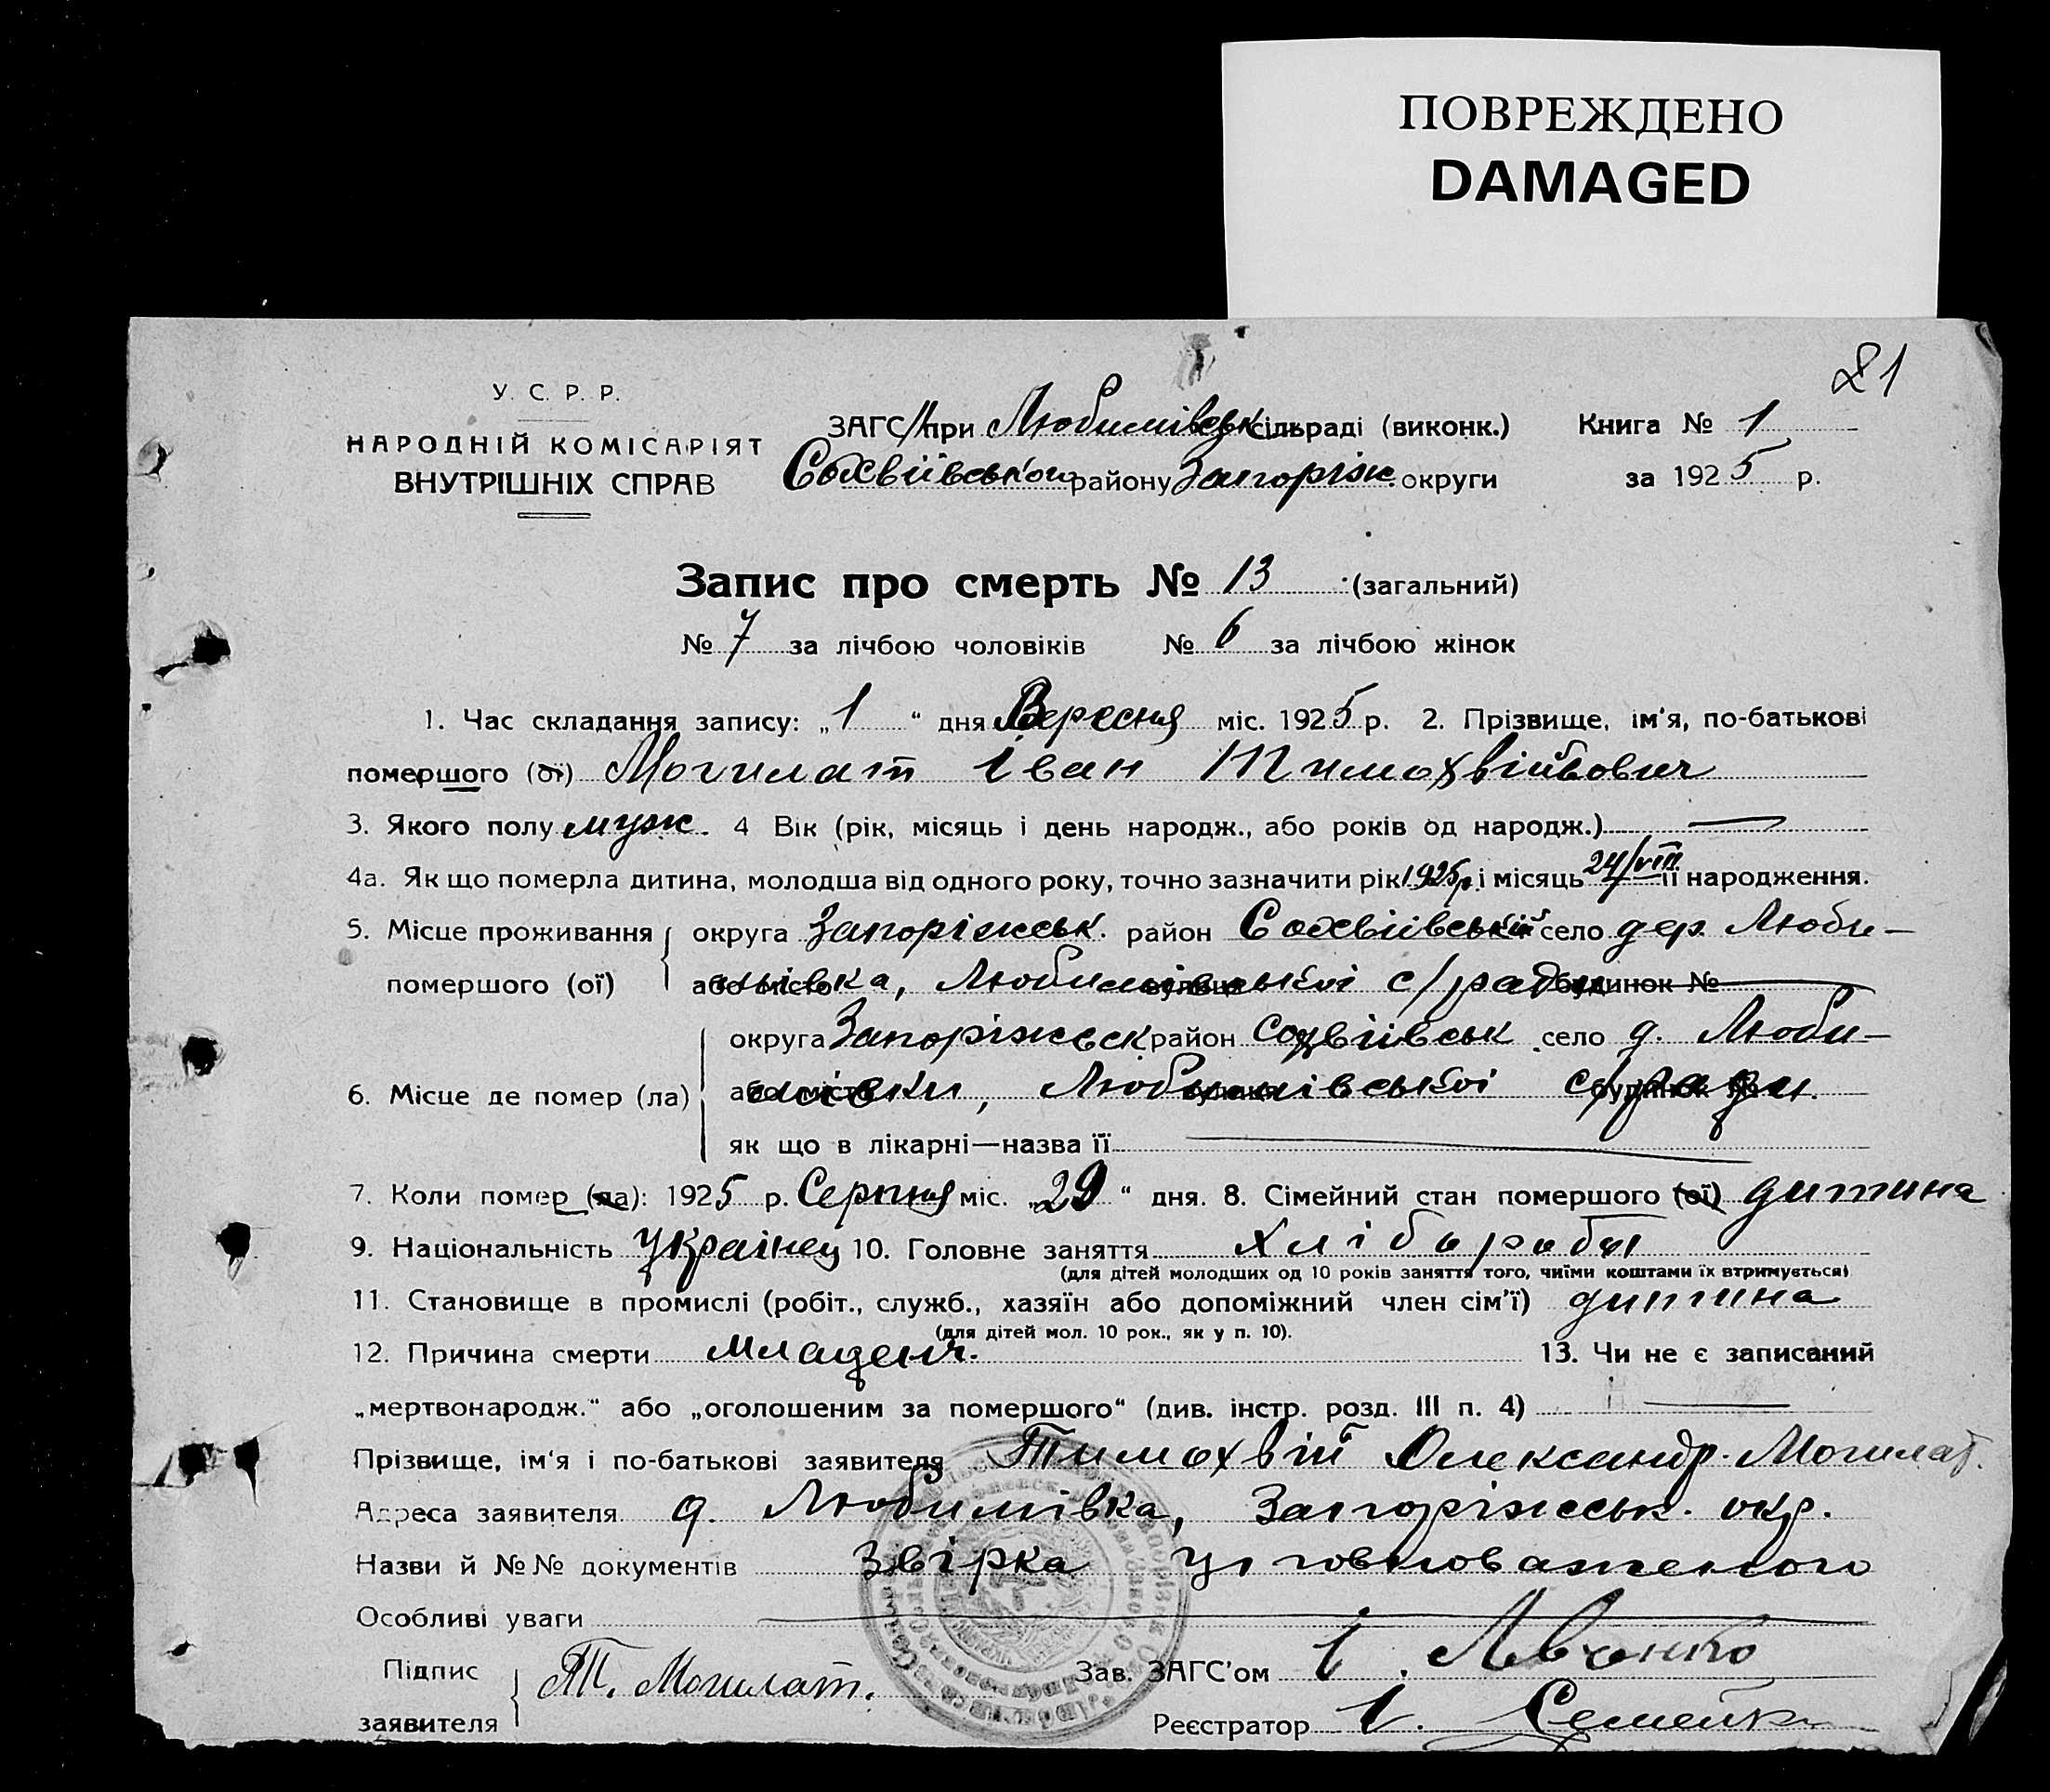 ПОВРЕЖДЕНО
DAMAGED
81
У. С. Р. Р.
НАРОДНІЙ КОМІСАРІЯТ
ВНУТРІШНІХ СПРАВ
ЗАГС при Любимівськ сільраді (виконк.) Книга № 1
Софіївськом району Запоріж. округи за 1925 р.
Запис про смерть № 13 (загальний)
№ 7 за лічбою чоловіків № 6 за лічбою жінок
1. Час складання запису: „1“ дня Вересня міс. 1925 р. 2. Прізвище, ім'я, по-батькові
помершого (ої) Могилат Іван Тимохвійович
3. Якого полу муж. 4 Вік (рік, місяць і день народж., або років од народж.)
4а. Як що померла дитина, молодша від одного року, точно зазначити рік 1925р. і місяць 24/VIII її народження.
5. Місце проживання округа Запоріжськ. район село дер. Люби-
помершого (ої) або місто мівка, Любимівської с/ради будинок №
округа Запоріжськ район село д. Люби-
6. Місце де помер (ла) мівки, Любимівської с/ради.
як що в лікарні—назва її
7. Коли помер (ла): 1925 р. Серпня міс. „29“ дня. 8. Сімейний стан помершого (ої) дитина
9. Національність Українец 10. Головне заняття Хліборобы
(для дітей молодших од 10 років заняття того, чиїми коштами їх втримується)
11. Становище в промислі (робіт., служб., хазяїн або допоміжний член сім'ї) дитина
(для дітей мол. 10 рок., як у п. 10).
12. Причина смерти младенч. 13. Чи не є записаний
„мертвонародж.“ або „оголошеним за помершого“ (див. інстр. розд. III п. 4)
Прізвище, ім'я і по-батькові заявителя Тимохвій Олександр. Могилат.
Адреса заявителя д. Любимівка, Запоріжськ. окр.
Назви й №№ документів Звірка уповноваженого
Особливі уваги
Підпис заявителя Т. Могилат. Зав. ЗАГС'ом І. Левченко
Реєстратор І.